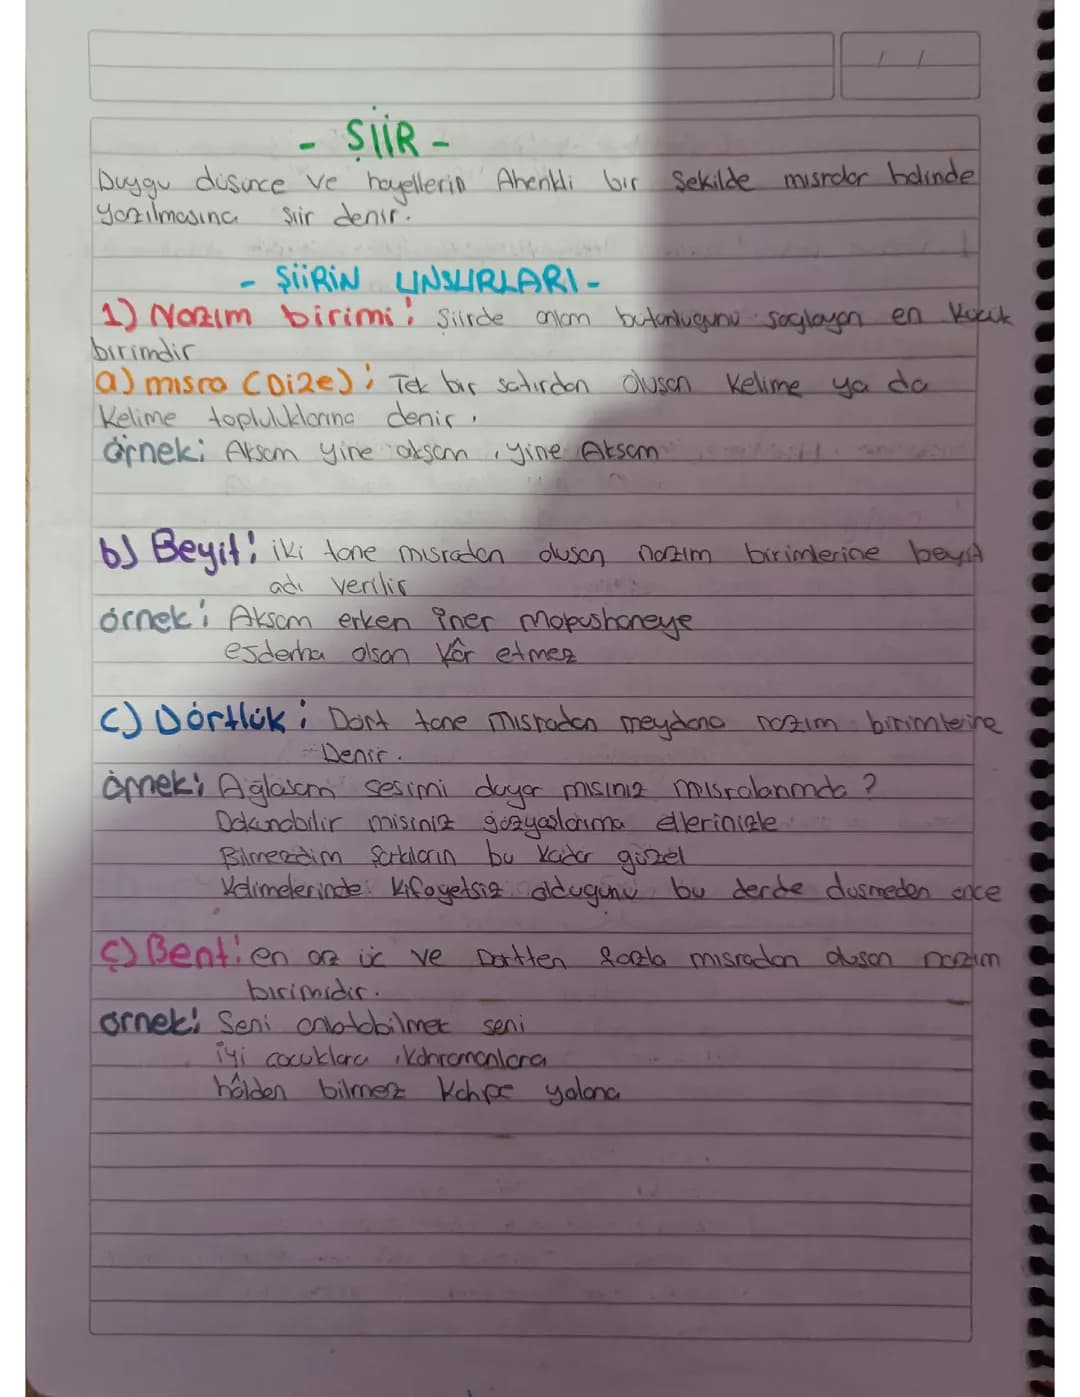 - ŞİİR -
Duygu düsünce ve hayellerin Ahenkli bir Şekilde mısralar halinde
yazılmasına şiir denir.
- ŞİİRİN UNSURLARI -
1) Nazım birimi: Şiirde anlam bütünlüğünü sağlayan en küçük
birimdir
a) mısra (Dize): Tek bir satırdan Oluşan kelime ya da
kelime topluluklarına denir.
örnek: Akşam yine akşam, yine Akşam
b) Beyit: iki tane mısradan oluşan nazım birimlerine beyit
adı verilir
örnek: Akşam erken iner Mapushaneye
ejderha olsan kâr etmez
c) Dörtlük: Dört tane mısradan meydana nazım birimlerine
Denir.
örnek: Ağlasam sesimi duyar mısınız mısralarımda?
Dokunabilir misiniz gözyaşlarıma ellerinizle
Bilmezdim Şarkıların bu kadar güzel
kelimelerinde kifayetsiz olduğunu bu derde düşmeden önce
ç) Bent: en az üç ve Dörtten fazla mısradan oluşan nazım
birimidir.
örnek: Seni anlatabilmek seni
iyi çocuklara, kahramanlara
hâlden bilmez kahpe yalana